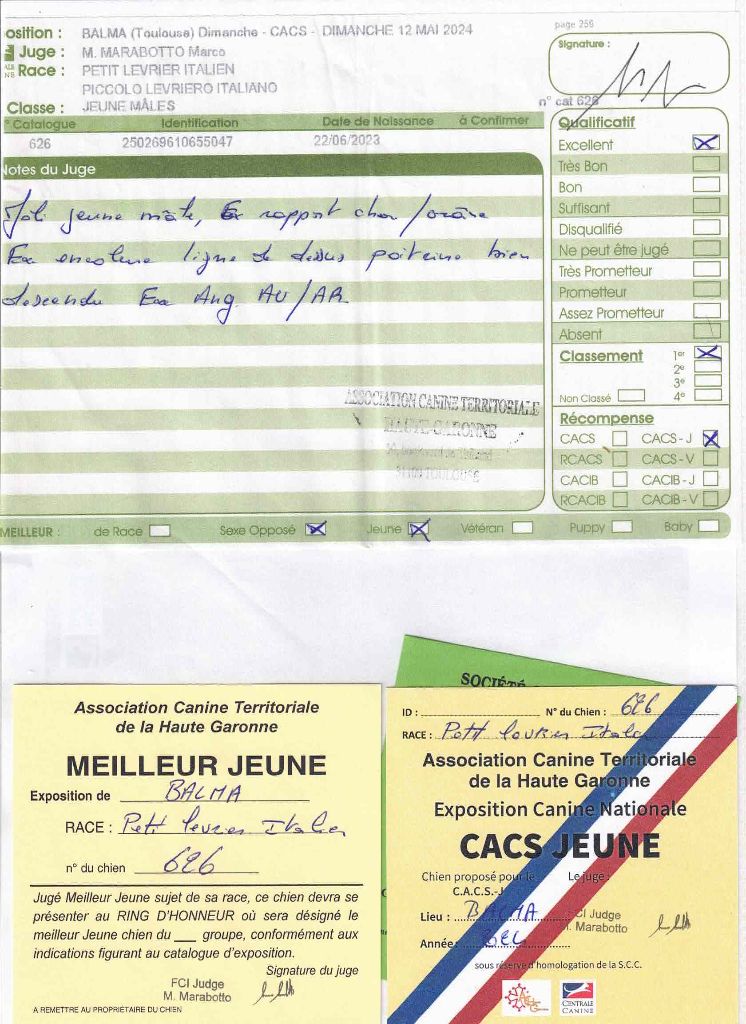 osition : BALMA (Toulouse) Dimanche - CACS - DIMANCHE 12 MAI 2024
page 256
Juge : M. MARABOTTO Marco
Signature :
Race : PETIT LEVRIER ITALIEN
PICCOLO LEVRIERO ITALIANO
Classe : JEUNE MÂLES
n° cat 626
° Catalogue Identification Date de Naissance à Confirmer
626 250269610655047 22/06/2023
Notes du Juge
Joli jeune mâle, Ex rapport chan/crâne
Ex encolure ligne de dessus poitrine bien
descendu Exc Ang. AV/AR.
ASSOCIATION CANINE TERRITORIALE
HAUTE-GARONNE
31100 TOULOUSE
Qualificatif
Excellent
Très Bon
Bon
Suffisant
Disqualifié
Ne peut être jugé
Très Prometteur
Prometteur
Assez Prometteur
Absent
Classement 1er
2e
3e
Non Classé 4e
Récompense
CACS CACS - J
RCACS CACS - V
CACIB CACIB - J
RCACIB CACIB - V
MEILLEUR : de Race Sexe Opposé Jeune Vétéran Puppy Baby
SOCIÉTÉ
Association Canine Territoriale
de la Haute Garonne
MEILLEUR JEUNE
Exposition de BALMA
RACE : Petit levrier Italien
n° du chien 626
Jugé Meilleur Jeune sujet de sa race, ce chien devra se
présenter au RING D'HONNEUR où sera désigné le
meilleur Jeune chien du ___ groupe, conformément aux
indications figurant au catalogue d'exposition.
Signature du juge
FCI Judge
M. Marabotto
A REMETTRE AU PROPRIÉTAIRE DU CHIEN
ID : N° du Chien : 626
RACE : Petit levrier Italien
Association Canine Territoriale
de la Haute Garonne
Exposition Canine Nationale
CACS JEUNE
Chien proposé pour le Le juge :
C.A.C.S.-J
Lieu : BALMA
FCI Judge
M. Marabotto
Année :
sous réserve d'homologation de la S.C.C.
CENTRALE
CANINE